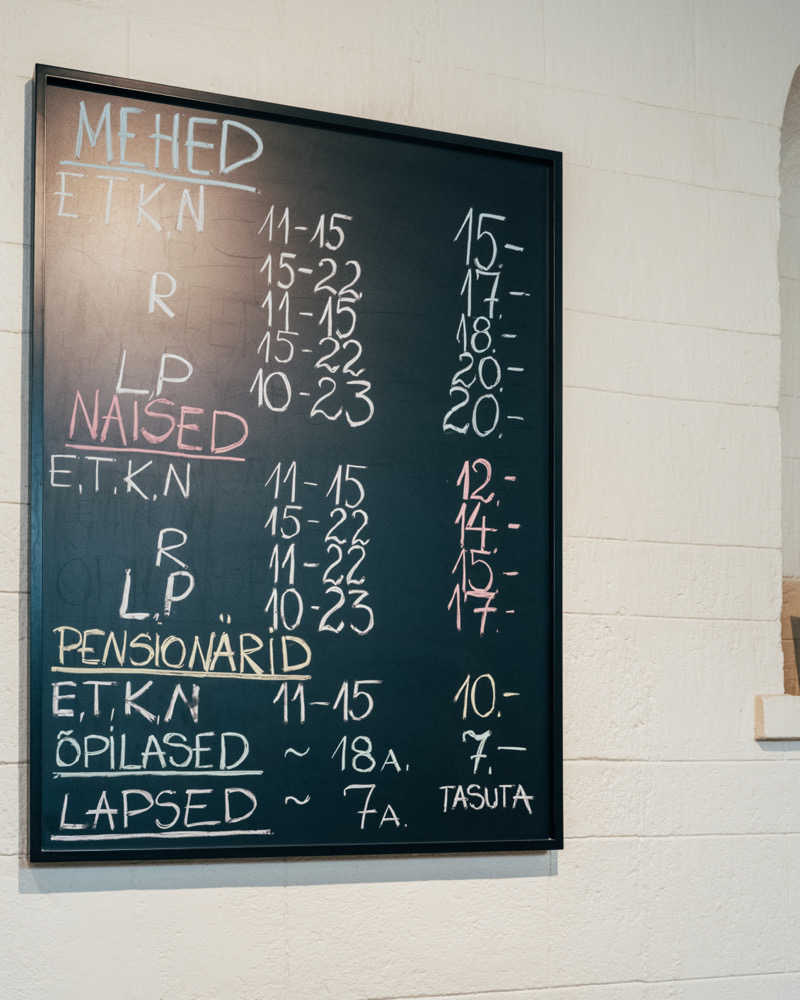 MEHED
E T K, N 11-15 15.-
15-22 17.-
R 11-15 18.-
15-22 20.-
L,P 10-23 20.-
NAISED
E,T,K,N 11-15 12.-
15-22 14.-
R 11-22 15.-
L,P 10-23 17.-
PENSIONÄRID
E,T,K,N 11-15 10.-
ÕPILASED ~ 18A. 7.-
LAPSED ~ 7A. TASUTA